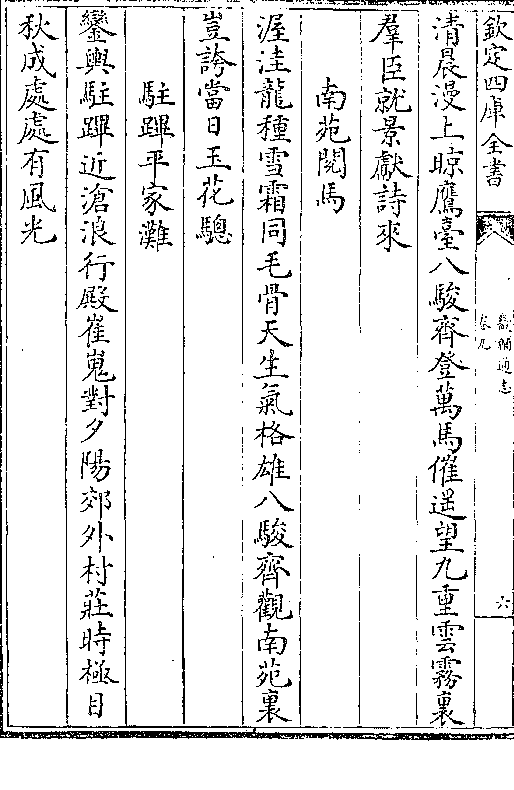 欽定四庫全書
畿輔通志
卷九
六
清晨漫上晾鷹臺八駿齊登萬馬催遥望九重雲霧裏
羣臣就景獻詩來
南苑閱馬
渥洼龍種雪霜同毛骨天生氣格雄八駿齊觀南苑裏
豈誇當日玉花驄
駐蹕平家灘
鑾輿駐蹕近滄浪行殿崔嵬對夕陽郊外村莊時極目
秋成處處有風光